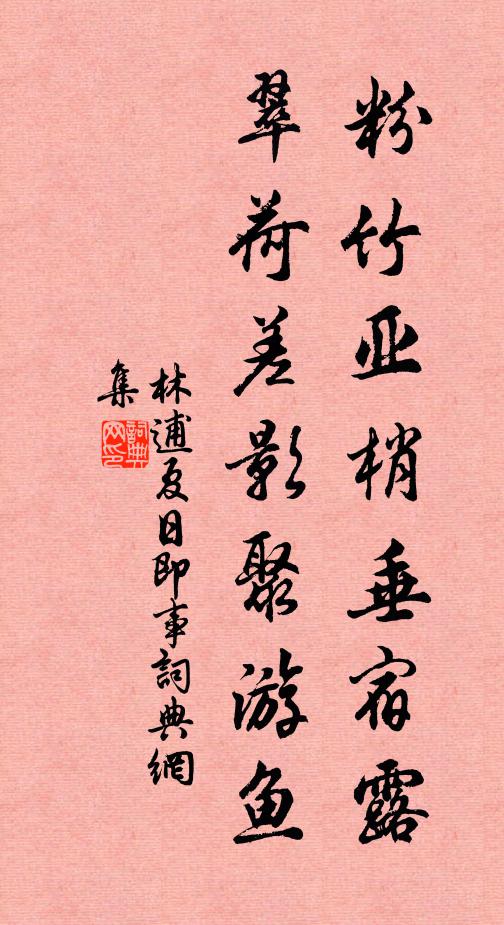 粉竹亚梢垂宿露
翠荷差影聚游鱼
林逋夏日即事詞典網
集
詞典
网印